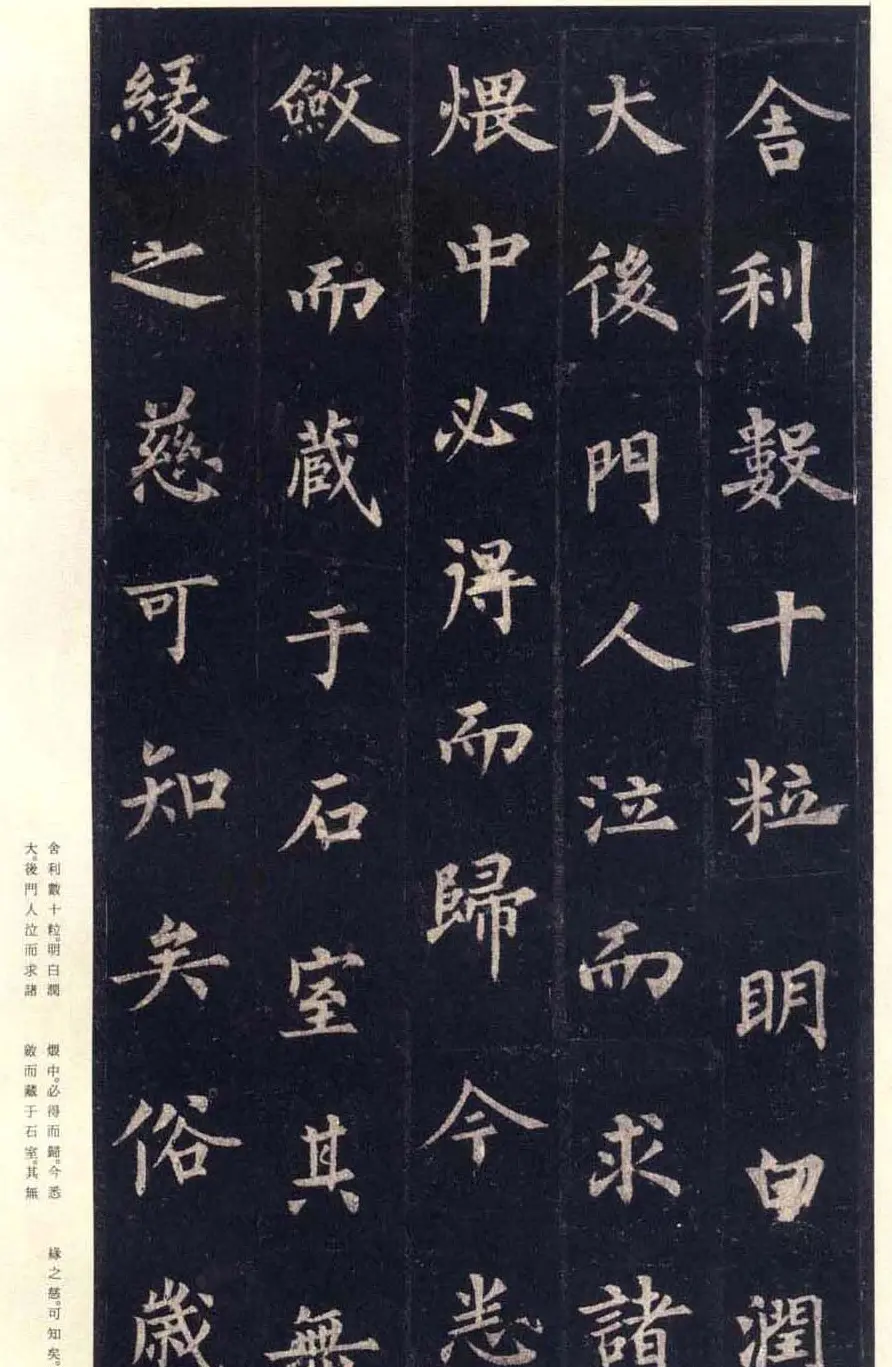 舍利數十粒明白潤
大後門人泣而求諸
煨中必得而歸今悉
斂而藏于石室其無
緣之慈可知矣俗歲
舍利數十粒。明白潤
大。後門人泣而求諸
煨中。必得而歸。今悉
斂而藏于石室。其無
緣之慈。可知矣。